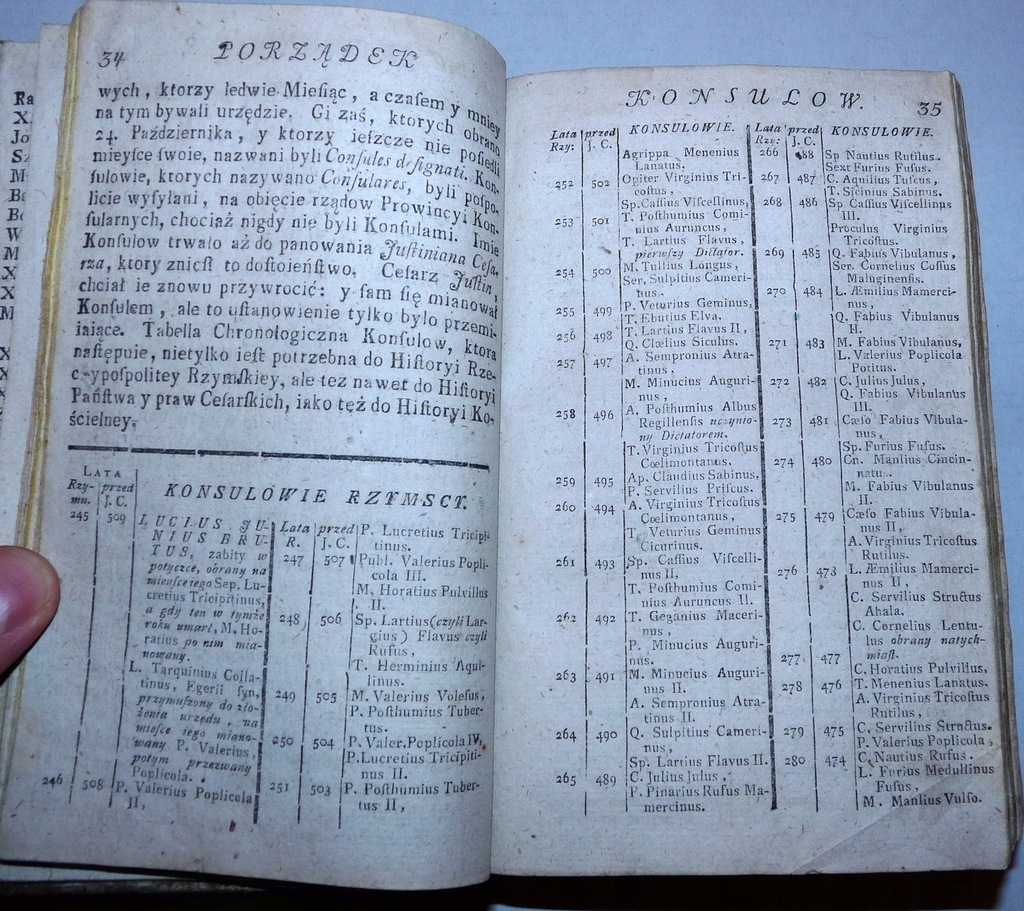 34 PORZĄDEK
wych, ktorzy ledwie Mieſiąc, a czaſem y mniey
na tym bywali urzędzie. Ci zaś, ktorych obrano
24. Października, y ktorzy ieſzcze nie poſiedli
mieyſce ſwoie, nazwani byli Conſules deſignati. Kon-
ſulowie, ktorych nazywano Conſulares, byli poſpo-
licie wyſyłani, na obięcie rządow Prowincyi Kon-
ſularnych, chociaż nigdy nie byli Konſulami. Imie
Konſulow trwało aż do panowania Juſtiniana Ceſa-
rza, ktory znicſł to doſtoieńſtwo. Ceſarz Juſtin,
chciał ie znowu przywrocić: y ſam ſię mianował
Konſulem, ale to uſtanowienie tylko było przemi-
iaiące. Tabella Chronologiczna Konſulow, ktora
naſtępuie, nietylko ieſt potrzebna do Hiſtoryi Rze-
czypoſpolitey Rzymſkiey, ale tez nawet do Hiſtoryi
Pańſtwa y praw Ceſarſkich, iako też do Hiſtoryi Ko-
ścielney.
KONSULOWIE RZYMSCY.
LATA
Rzy- przed
mu. J. C.
245 509 LUCIUS JU-
NIUS BRU-
TUS, zabity w
potyczce, obrany na
mieyſce iego Sep. Lu-
cretius Tricipitinus,
a gdy ten w tymże
roku umarł, M. Ho-
ratius po nim mia-
nowany.
L. Tarquinius Colla-
tinus, Egerii ſyn,
przymuſzony do zło-
żenia urzędu, na
mieyſce iego miano-
wany P. Valerius,
potym przezwany
Poplicola.
246 508 P. Valerius Poplicola
II,
Lata przed
R. J. C.
P. Lucretius Tricipi-
tinus.
247 507 Publ. Valerius Popli-
cola III.
M. Horatius Pulvillus
II.
248 506 Sp. Lartius (czyli Lar-
gius) Flavus czyli
Rufus,
T. Herminius Aqui-
linus.
249 505 M. Valerius Voleſus,
P. Poſthumius Tuber-
tus.
250 504 P. Valer. Poplicola IV,
P. Lucretius Tricipiti-
nus II.
251 503 P. Poſthumius Tuber-
tus II,
KONSULOW. 35
Lata przed KONSULOWIE.
Rzy: J. C.
Agrippa Menenius
Lanatus.
252 502 Opiter Virginius Tri-
coſtus,
Sp. Caſſius Viſcellinus,
253 501 T. Poſthumius Comi-
nius Auruncus,
T. Lartius Flavus,
pierwſzy Dictator.
254 500 M. Tullius Longus,
Ser. Sulpitius Cameri-
nus.
255 499 P. Veturius Geminus,
T. Ebutius Elva.
256 498 T. Lartius Flavus II,
Q. Clœlius Siculus.
257 497 A. Sempronius Atra-
tinus,
M. Minucius Auguri-
nus,
258 496 A. Poſthumius Albus
Regillenſis uczynio-
ny Dictatorem.
T. Virginius Tricoſtus
Cœlimontanus.
259 495 Ap. Claudius Sabinus,
P. Servilius Priſcus.
260 494 A. Virginius Tricoſtus
Cœlimontanus,
T. Veturius Geminus
Cicurinus.
261 493 Sp. Caſſius Viſcelli-
nus II,
T. Poſthumius Comi-
nius Auruncus II.
262 492 T. Geganius Maceri-
nus,
P. Minucius Auguri-
nus.
263 491 M. Minucius Auguri-
nus II.
A. Sempronius Atra-
tinus II.
264 490 Q. Sulpitius Cameri-
nus,
Sp. Lartius Flavus II.
265 489 C. Julius Julus,
P. Pinarius Rufus Ma-
mercinus.
Lata przed KONSULOWIE.
Rzy: J. C.
266 488 Sp Nautius Rutilus.
Sext Furius Fuſus.
267 487 C. Aquilius Tuſcus,
T. Sicinius Sabinus.
268 486 Sp Caſſius Viſcellinus
III.
Proculus Virginius
Tricoſtus.
269 485 Q. Fabius Vibulanus,
Ser. Cornelius Coſſus
Maluginenſis.
270 484 L. Æmilius Mamerci-
nus,
Q. Fabius Vibulanus
II.
271 483 M. Fabius Vibulanus,
L. Valerius Poplicola
Potitus.
272 482 C. Julius Julus,
Q. Fabius Vibulanus
III.
273 481 Cæſo Fabius Vibula-
nus,
Sp. Furius Fuſus.
274 480 Cn. Manlius Cincin-
natus.
M. Fabius Vibulanus
II.
275 479 Cæſo Fabius Vibula-
nus II,
A. Virginius Tricoſtus
Rutilus.
276 473 L. Æmilius Mamerci-
nus II,
C. Servilius Structus
Ahala.
C. Cornelius Lentu-
lus obrany natych-
miaſt.
277 477 C. Horatius Pulvillus,
T. Menenius Lanatus.
278 476 A. Virginius Tricoſtus
Rutilus,
C. Servilius Structus.
279 475 P. Valerius Poplicola,
C. Nautius Rufus.
280 474 L. Furius Medullinus
Fuſus,
M. Manlius Vulſo.